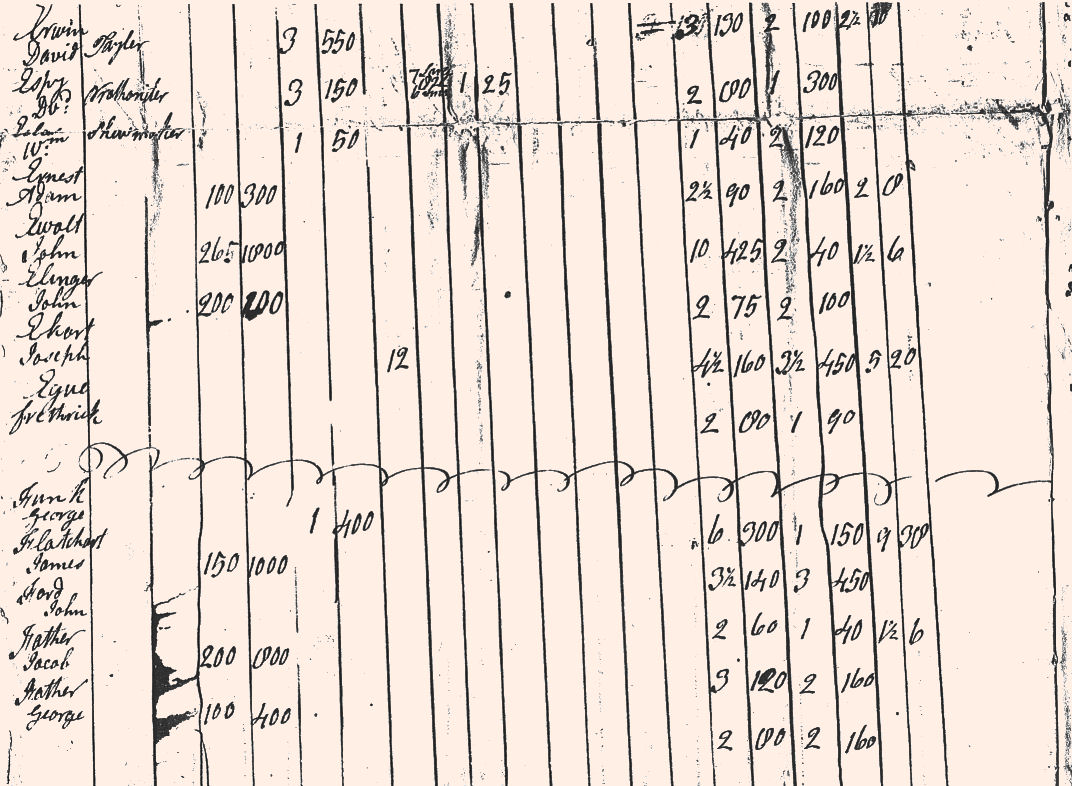 Erwin 3 130 2 100 2½
David Taylor 3 550
Espy
Do? 3 150 1 25 2 80 1 300
Wm Shewmaker 1 50 1 40 2 120
Ernest
Adam 100 300 2½ 90 2 160 2 8
Ewolt
John 265 1800 10 425 2 40 1½ 6
Elinger
John 200 2 75 2 100
Ekart
Joseph 12 4½ 160 3½ 450 5 20
Eque
frethrick 2 80 1 90
Funk
George 1 400 6 300 1 150 9 38
Flatchart
James 150 1000 3½ 140 3 450
Ford
John 2 60 1 40 1½ 6
Father
Jacob 200 800 3 120 2 160
Father
George 100 400 2 80 2 160